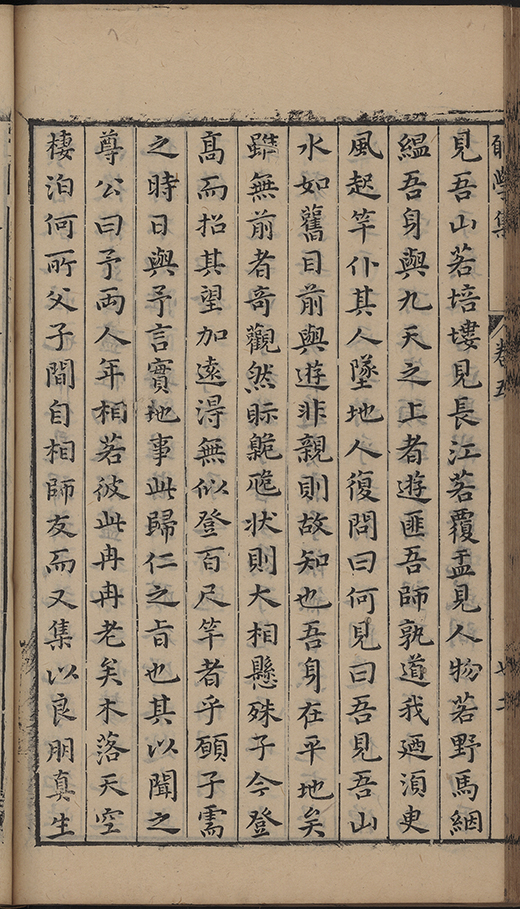 學集
卷五
見吾山若培塿見長江若覆盂見人物若野馬絪
緼吾身與九天之上者遊匪吾師孰道我廼湏臾
風起竿仆其人墜地人復問曰何見曰吾見吾山
水如舊目前與遊非親則故知也吾身在平地矣
雖無前者奇觀然眎臲卼状則大相懸殊子今登
髙而招其望加遠淂無似登百尺竿者乎願子需
之時日與予言實地事此歸仁之旨也其以聞之
尊公曰予兩人年相若彼此冉冉老矣木落天空
棲泊何所父子間自相師友而又集以良朋真生